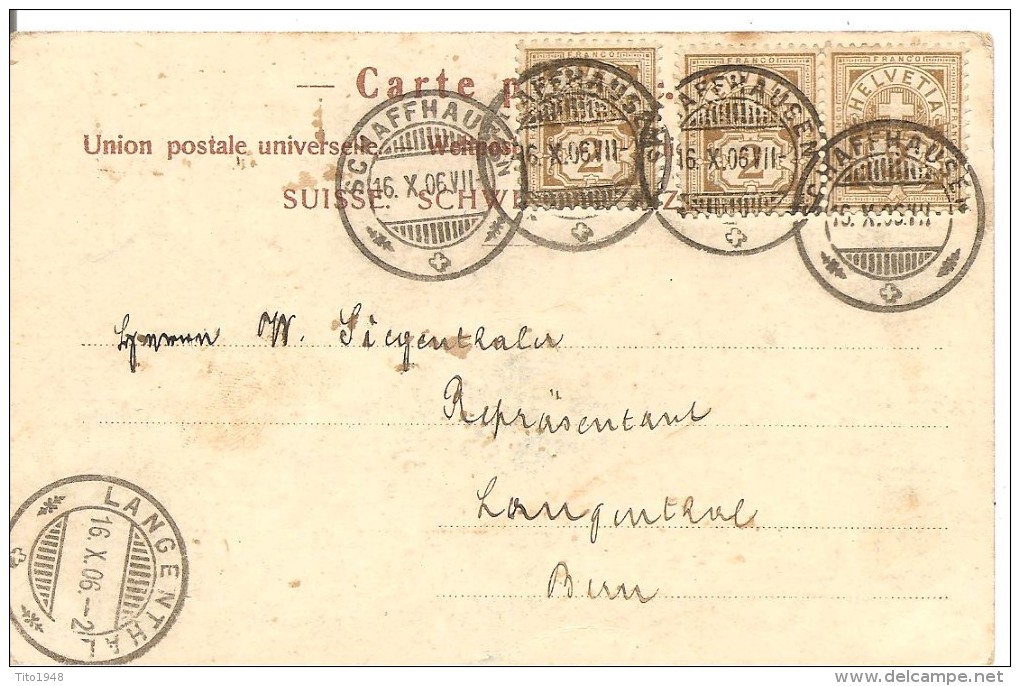 — Carte p
Union postale universelle. Weltpost
SUISSE. SCHWEIZ
FRANCO
FRANCO
FRANCO
HELVETIA
2
2
SCHAFFHAUSEN
16. X. 06. VII-
SCHAFFHAUSEN
16. X. 06 VII-
SCHAFFHAUSEN
16. X. 06 VII-
SCHAFFHAUSEN
16. X. 06. VII-
Herrn W. Siegenthaler
Repräsentant
Langenthal
Bern
LANGENTHAL
16. X. 06. - 2
Tito1948
delcampe.net